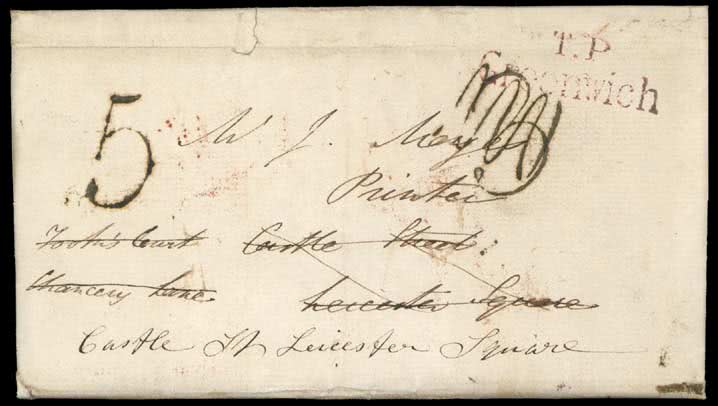 T.P
Greenwich
5
Mr J. Mayes
Printer
Took's Court Castle Street
Chancery Lane Leicester Square
Castle St Leicester Square